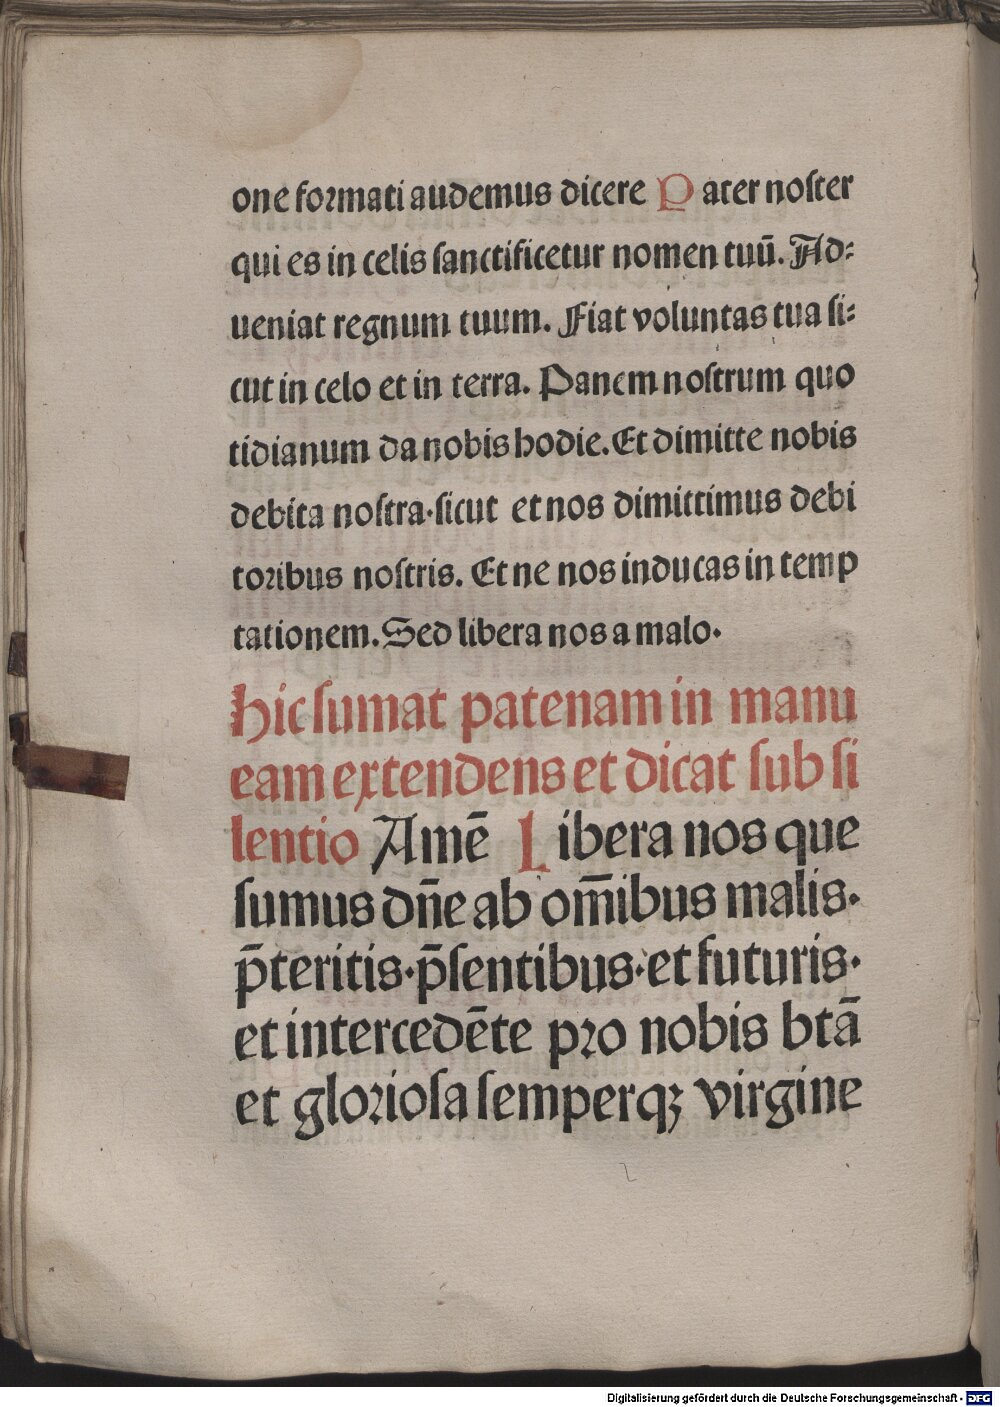 one formati audemus dicere Pater noſter
qui es in celis ſanctificetur nomen tuū. Ad⸗
ueniat regnum tuum. Fiat voluntas tua ſi⸗
cut in celo et in terra. Panem noſtrum quo
tidianum da nobis hodie. Et dimitte nobis
debita noſtra·ſicut et nos dimittimus debi
toribus noſtris. Et ne nos inducas in temp
tationem. Sed libera nos a malo·
hic ſumat patenam in manu
eam extendens et dicat ſub ſi
lentio Amē Libera nos que
ſumus dn̄e ab om̄ibus malis·
p̄teritis·p̄ſentibus·et futuris·
et intercedēte pro nobis btā
et glorioſa ſemperqꝫ virgine
Digitalisierung gefördert durch die Deutsche Forschungsgemeinschaft - DFG